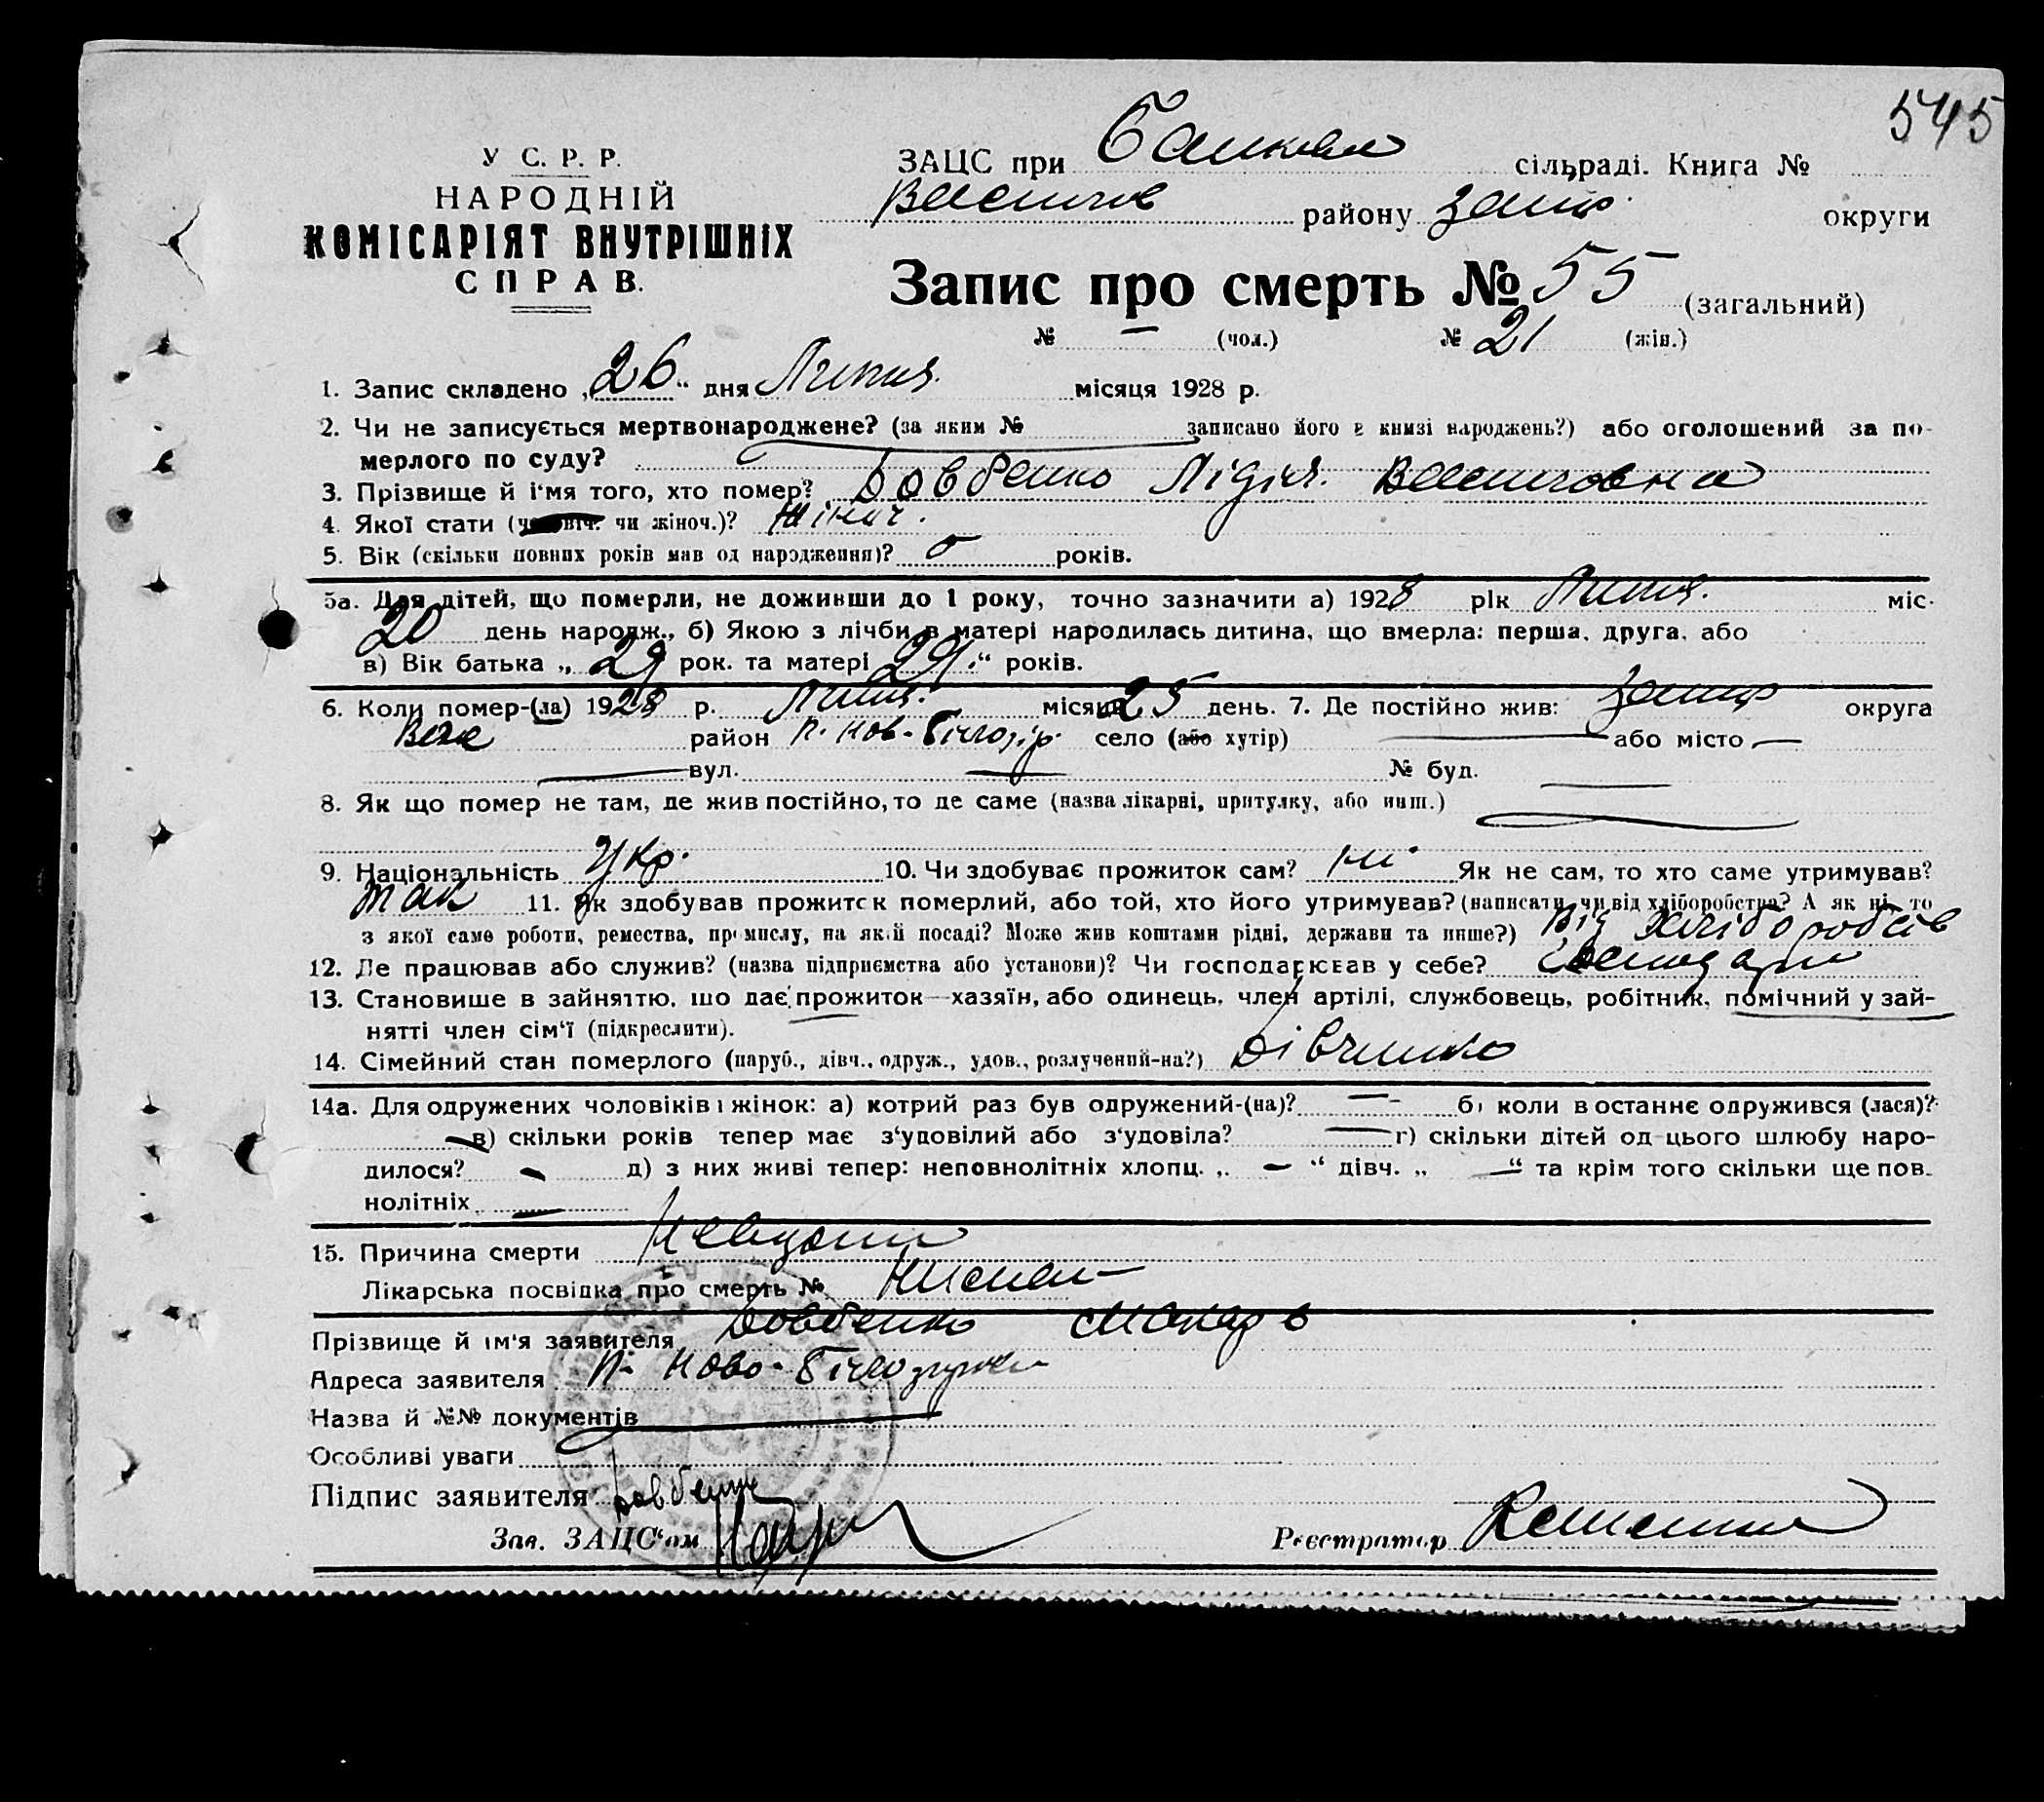 545
У С. Р. Р.
НАРОДНІЙ
КОМІСАРІЯТ ВНУТРІШНІХ
СПРАВ.
ЗАЦС при сільраді. Книга №
району Запор. округи
Запис про смерть № 55 (загальний)
№ — (чол.) № 21 (жін.)
1. Запис складено „26“ дня Липня місяця 1928 р.
2. Чи не записується мертвонароджене? (за яким № записано його в книзі народжень?) або оголошений за по-
мерлого по суду?
3. Прізвище й і'мя того, хто помер? Довбенко Лідія
4. Якої стати (чоловіч. чи жіноч.)? жіноч.
5. Вік (скільки повних років мав од народження)? років.
5а. Для дітей, що померли, не доживши до 1 року, точно зазначити а) 1928 рік Липня міс.
20 день народж., б) Якою з лічби в матері народилась дитина, що вмерла: перша, друга, або
в) Вік батька „29 рок. та матері 29“ років.
6. Коли помер-(ла) 1928 р. Липня місяця 25 день. 7. Де постійно жив: Запор округа
район Н. Нов-Білозір. село (або хутір) — або місто —
— вул. — № буд. —
8. Як що помер не там, де жив постійно, то де саме (назва лікарні, притулку, або инш.) —
9. Національність Укр. 10. Чи здобуває прожиток сам? ні Як не сам, то хто саме утримував?
так 11. Як здобував прожиток померлий, або той, хто його утримував? (написати, чи від хліборобства? А як ні, то
з якої саме роботи, ремества, промислу, на якій посаді? Може жив коштами рідні, держави та инше?) Від Хлібороб
12. Де працював або служив? (назва підприємства або установи)? Чи господарював у себе?
13. Становище в зайняттю, що дає прожиток—хазяїн, або одинець, член артілі, службовець, робітник, помічний у зай-
нятті член сім'ї (підкреслити).
14. Сімейний стан померлого (паруб., дівч., одруж., удов., розлучений-на?) Дівчинко
14а. Для одружених чоловіків і жінок: а) котрий раз був одружений-(на)? — б) коли в останнє одружився (лася)?
— в) скільки років тепер має з'удовілий або з'удовіла? — г) скільки дітей од цього шлюбу наро-
дилося? — д) з них живі тепер: неповнолітніх хлопц. „ — “ дівч. „ — “ та крім того скільки ще пов-
нолітніх —
15. Причина смерти
Лікарська посвідка про смерть №
Прізвище й ім'я заявителя Довбенко
Адреса заявителя Н- Ново-Білозурка
Назва й №№ документів
Особливі уваги
Підпис заявителя Довбенко
Зав. ЗАЦС'ом Реєстратор